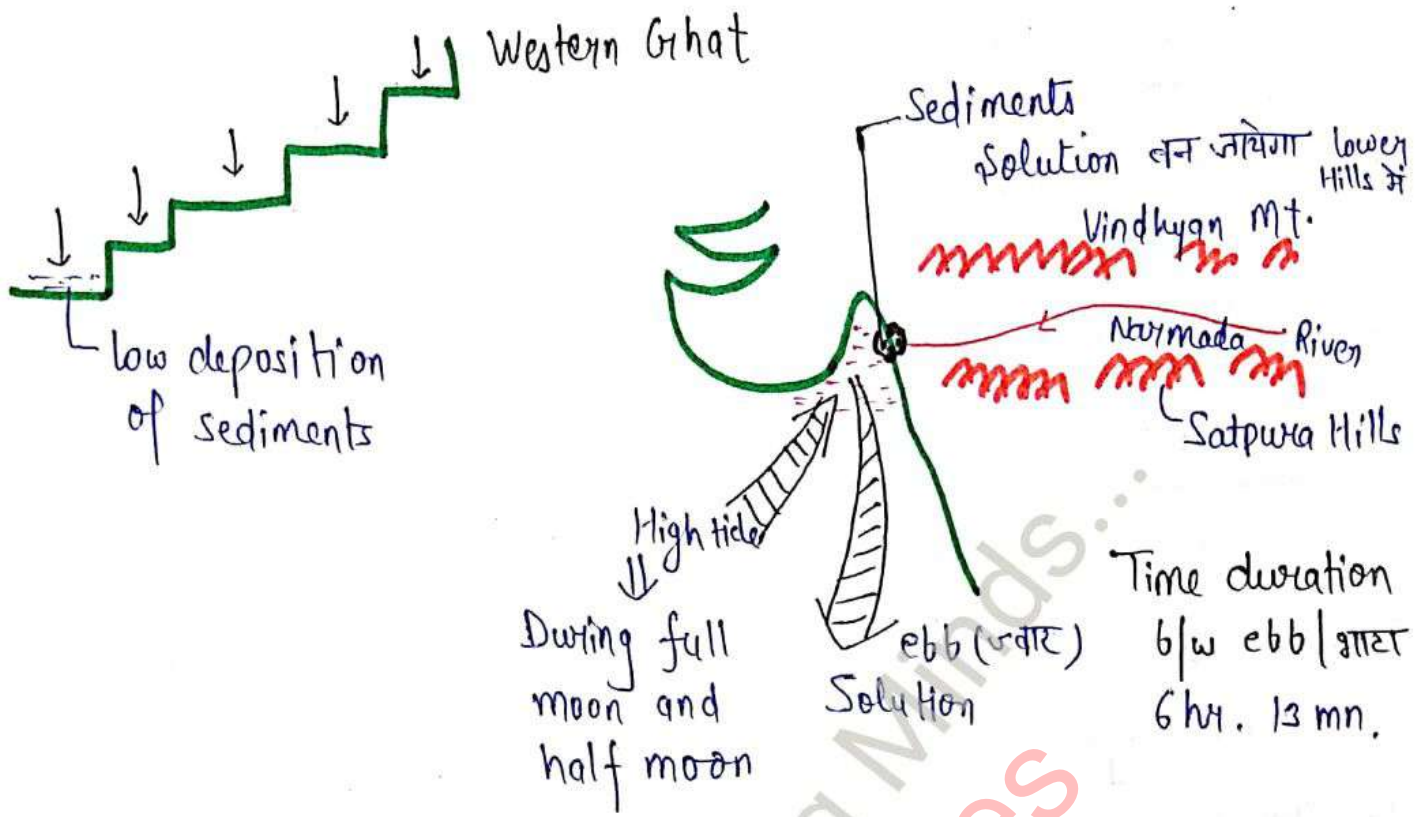 Western Ghat
low deposition
of sediments
Sediments
Solution बन जायेगा lower
Hills में
Vindhyan Mt.
Narmada River
Satpura Hills
High tide
During full
moon and
half moon
ebb (ज्वार)
Solution
Time duration
b/w ebb/भाटा
6 hr. 13 mn.
Minds...